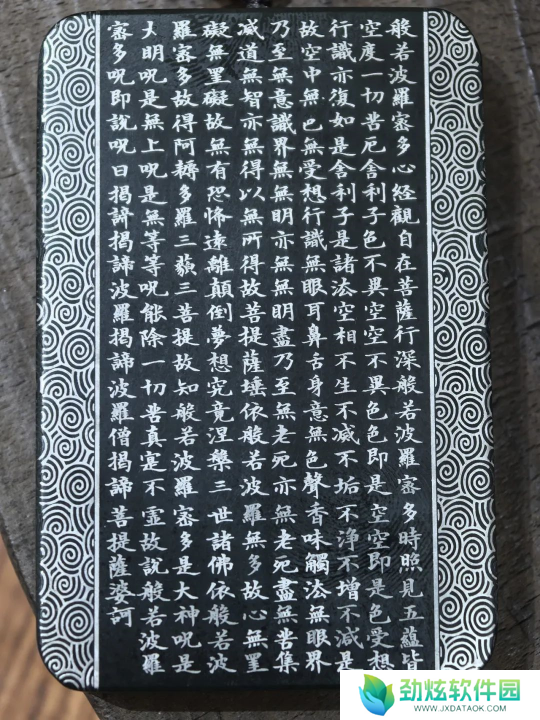 般若波羅蜜多心經觀自在菩薩行深般若波羅蜜多時照見五蘊皆
空度一切苦厄舍利子色不異空空不異色色即是空空即是色受想
行識亦復如是舍利子是諸法空相不生不滅不垢不淨不增不減是
故空中無色無受想行識無眼耳鼻舌身意無色聲香味觸法無眼界
乃至無意識界無無明亦無無明盡乃至無老死亦無老死盡無苦集
滅道無智亦無得以無所得故菩提薩埵依般若波羅無多故心無罣
礙無罣礙故無有恐怖遠離顛倒夢想究竟涅槃三世諸佛依般若波
羅蜜多故得阿耨多羅三藐三菩提故知般若波羅蜜多是大神呪是
大明呪是無上呪是無等等呪能除一切苦真寔不虛故說般若波羅
蜜多呪即說呪曰揭諦揭諦波羅揭諦波羅僧揭諦菩提薩婆訶
劲炫软件园
WWW.JXDATAOK.COM